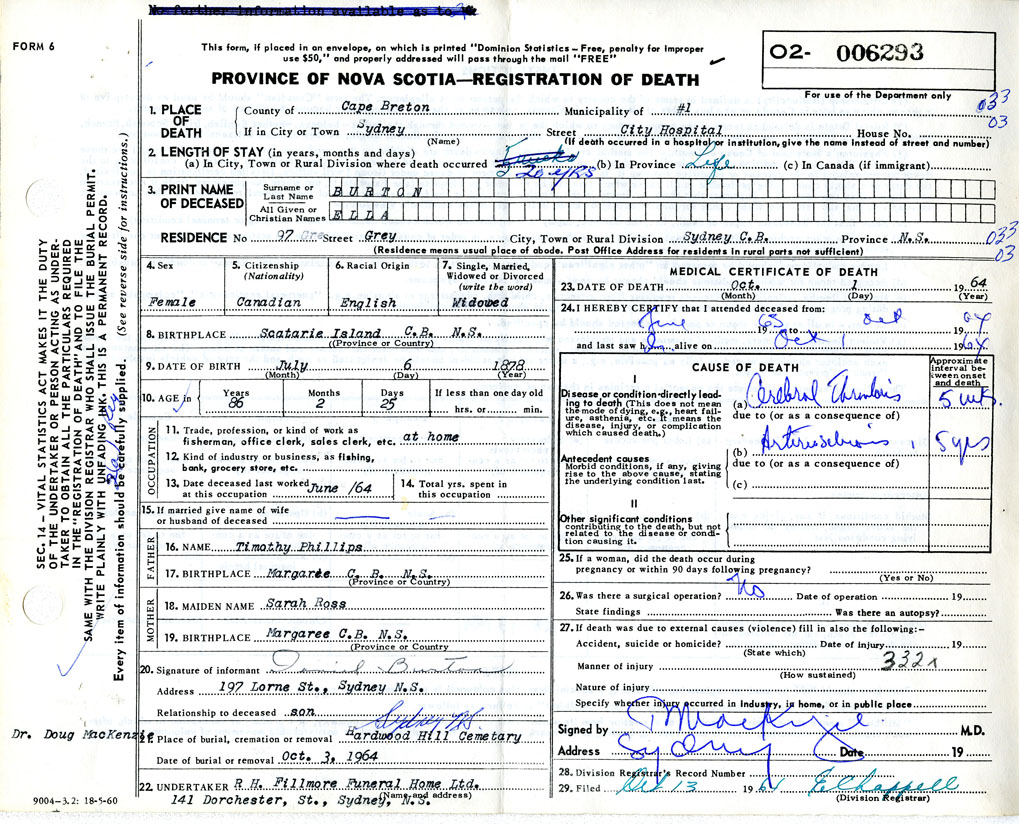 No further information available as to
FORM 6
This form, if placed in an envelope, on which is printed "Dominion Statistics – Free, penalty for improper
use $50," and properly addressed will pass through the mail "FREE"
O2- 006293
For use of the Department only
PROVINCE OF NOVA SCOTIA—REGISTRATION OF DEATH
033
03
1. PLACE OF DEATH
County of Cape Breton Municipality of #1
If in City or Town Sydney Street City Hospital House No.
(Name) (If death occurred in a hospital or institution, give the name instead of street and number)
2. LENGTH OF STAY (in years, months and days)
(a) In City, Town or Rural Division where death occurred 20 yrs (b) In Province Life (c) In Canada (if immigrant)
3. PRINT NAME OF DECEASED
Surname or Last Name BURTON
All Given or Christian Names ELLA
RESIDENCE No 97 Street Grey City, Town or Rural Division Sydney C.B. Province N.S.
(Residence means usual place of abode. Post Office Address for residents in rural parts not sufficient)
033
03
4. Sex
Female
5. Citizenship (Nationality)
Canadian
6. Racial Origin
English
7. Single, Married, Widowed or Divorced (write the word)
Widowed
8. BIRTHPLACE Scatarie Island C.B. N.S.
(Province or Country)
9. DATE OF BIRTH July 6 1878
(Month) (Day) (Year)
10. AGE in Years 86 Months 2 Days 25 If less than one day old hrs. or min.
OCCUPATION
11. Trade, profession, or kind of work as
fisherman, office clerk, sales clerk, etc. at home
12. Kind of industry or business, as fishing,
bank, grocery store, etc.
13. Date deceased last worked at this occupation June /64
14. Total yrs. spent in this occupation
15. If married give name of wife
or husband of deceased
FATHER
16. NAME Timothy Phillips
17. BIRTHPLACE Margaree C. B. N.S.
(Province or Country)
MOTHER
18. MAIDEN NAME Sarah Ross
19. BIRTHPLACE Margaree C.B. N.S.
(Province or Country
20. Signature of informant
Address 197 Lorne St., Sydney N.S.
Relationship to deceased son
Sydney NS
Dr. Doug MacKenzie
21. Place of burial, cremation or removal Hardwood Hill Cemetary
Date of burial or removal Oct. 3, 1964
22. UNDERTAKER R.H. Fillmore Funeral Home Ltd.
(Name and address)
141 Dorchester, St., Sydney, N.S.
9004–3.2: 18-5-60
MEDICAL CERTIFICATE OF DEATH
23. DATE OF DEATH Oct. 1 1964
(Month) (Day) (Year)
24. I HEREBY CERTIFY that I attended deceased from:
June 1963 to Oct 1964
and last saw h alive on Oct 1 1964
CAUSE OF DEATH
Approximate interval between onset and death
I
Disease or condition directly leading to death (This does not mean the mode of dying, e.g., heart failure, asthenia, etc. It means the disease, injury, or complication which caused death.)
(a) Cerebral Thrombosis 5 wks
due to (or as a consequence of)
(b) Arteriosclerosis 5 yrs
Antecedent causes
Morbid conditions, if any, giving rise to the above cause, stating the underlying condition last.
due to (or as a consequence of)
(c)
II
Other significant conditions
contributing to the death, but not related to the disease or condition causing it.
25. If a woman, did the death occur during
pregnancy or within 90 days following pregnancy?
(Yes or No)
26. Was there a surgical operation? No Date of operation 19
State findings Was there an autopsy?
27. If death was due to external causes (violence) fill in also the following:–
Accident, suicide or homicide? Date of injury 19
(State which)
Manner of injury 332x
(How sustained)
Nature of injury
Specify whether injury occurred in industry, in home, or in public place
Signed by MacKenzie M.D.
Address Sydney Date 19
28. Division Registrar's Record Number
29. Filed Oct 13 1964 E Chappell
(Division Registrar)
SEC. 14 – VITAL STATISTICS ACT MAKES IT THE DUTY
OF THE UNDERTAKER OR PERSON ACTING AS UNDER-
TAKER TO OBTAIN ALL THE PARTICULARS REQUIRED
IN THE "REGISTRATION OF DEATH" AND TO FILE THE
SAME WITH THE DIVISION REGISTRAR WHO SHALL ISSUE THE BURIAL PERMIT.
WRITE PLAINLY WITH UNFADING INK. THIS IS A PERMANENT RECORD.
Every item of information should be carefully supplied. (See reverse side for instructions.)